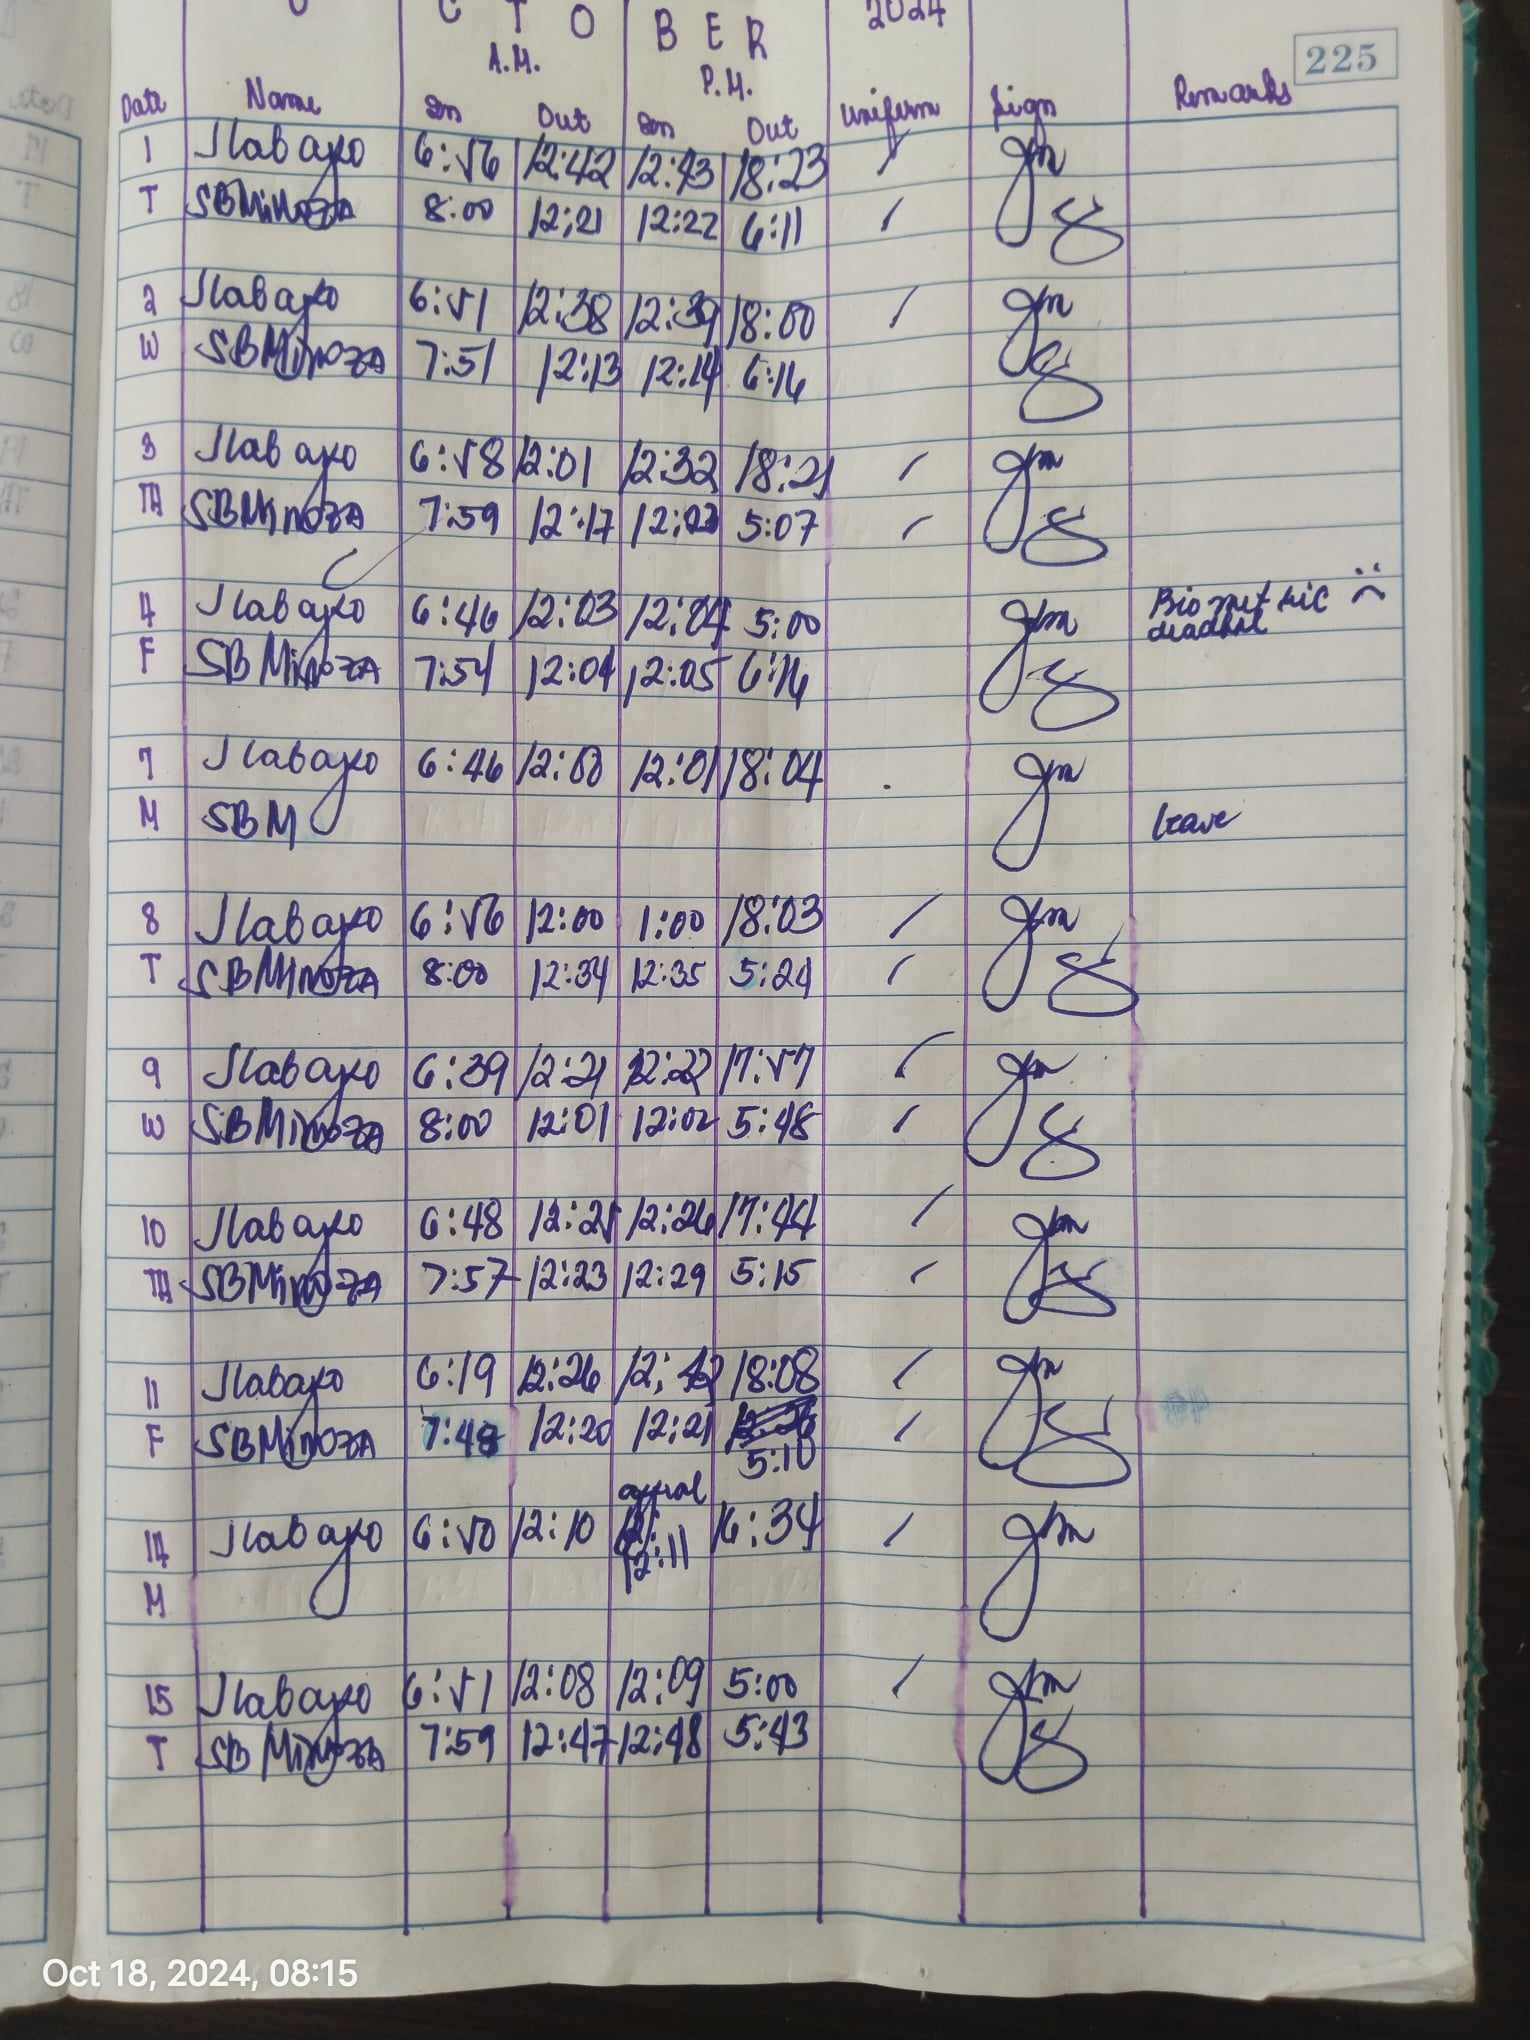 OCTOBER 2024
225
A.M. P.M.
Date Name In Out In Out Uniform Sign Remarks
1 Jlabajo 6:56 12:42 12:43 18:23
T SBMinoza 8:00 12:21 12:22 6:11
2 Jlabajo 6:51 12:38 12:39 18:00
W SBMinoza 7:51 12:13 12:14 6:16
3 Jlabajo 6:58 12:01 12:32 18:21
TH SBMinoza 7:59 12:17 5:07
4 Jlabajo 6:46 12:03 12:04 5:00 Biometric
F SBMinoza 7:54 12:04 12:05 6:16
7 Jlabajo 6:46 12:00 12:01 18:04
M SBM leave
8 Jlabajo 6:56 12:00 1:00 18:03
T SBMinoza 8:00 12:34 12:35 5:24
9 Jlabajo 6:39 12:21 12:22 17:57
W SBMinoza 8:00 12:01 12:02 5:48
10 Jlabajo 6:48 12:25 12:26 17:44
TH SBMinoza 7:57 12:23 12:29 5:15
11 Jlabajo 6:19 12:26 18:08
F SBMinoza 12:20 12:21
5:10
14 Jlabajo 6:50 12:10 12:11 16:34
M
15 Jlabajo 6:51 12:08 12:09 5:00
T SBMinoza 7:59 12:47 12:48 5:43
Oct 18, 2024, 08:15